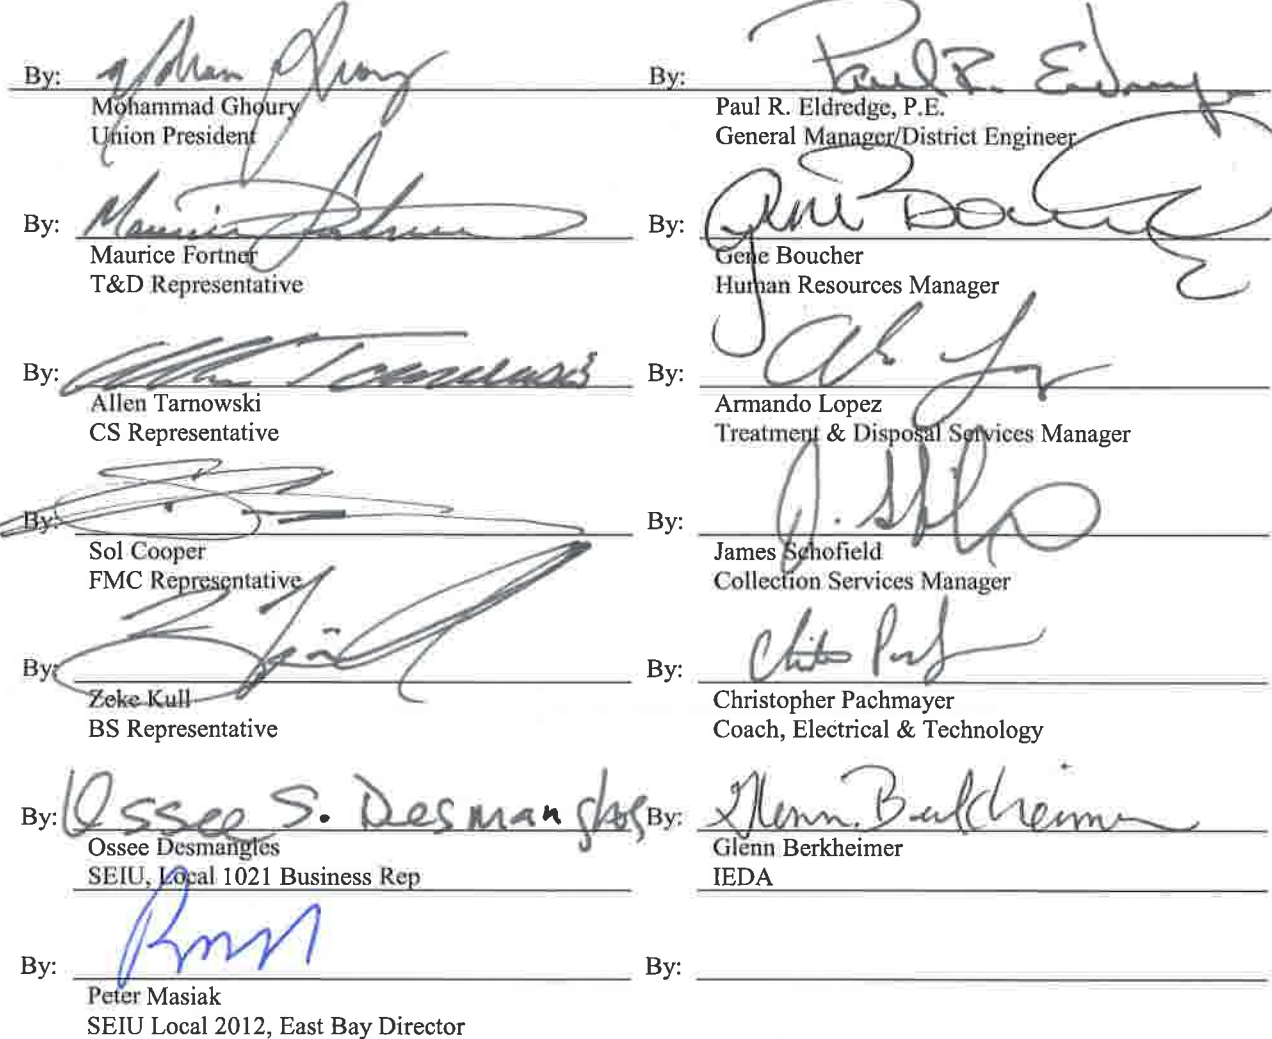 By:
Mohammad Ghoury
Union President
By:
Maurice Fortner
T&D Representative
By:
Allen Tarnowski
CS Representative
By:
Sol Cooper
FMC Representative
By:
Zeke Kull
BS Representative
By: Ossee S. Desmangles
Ossee Desmangles
SEIU, Local 1021 Business Rep
By:
Peter Masiak
SEIU Local 2012, East Bay Director
By: Paul R. Eldredge
Paul R. Eldredge, P.E.
General Manager/District Engineer
By: Gene Boucher
Gene Boucher
Human Resources Manager
By:
Armando Lopez
Treatment & Disposal Services Manager
By:
James Schofield
Collection Services Manager
By:
Christopher Pachmayer
Coach, Electrical & Technology
By: Glenn Berkheimer
Glenn Berkheimer
IEDA
By: